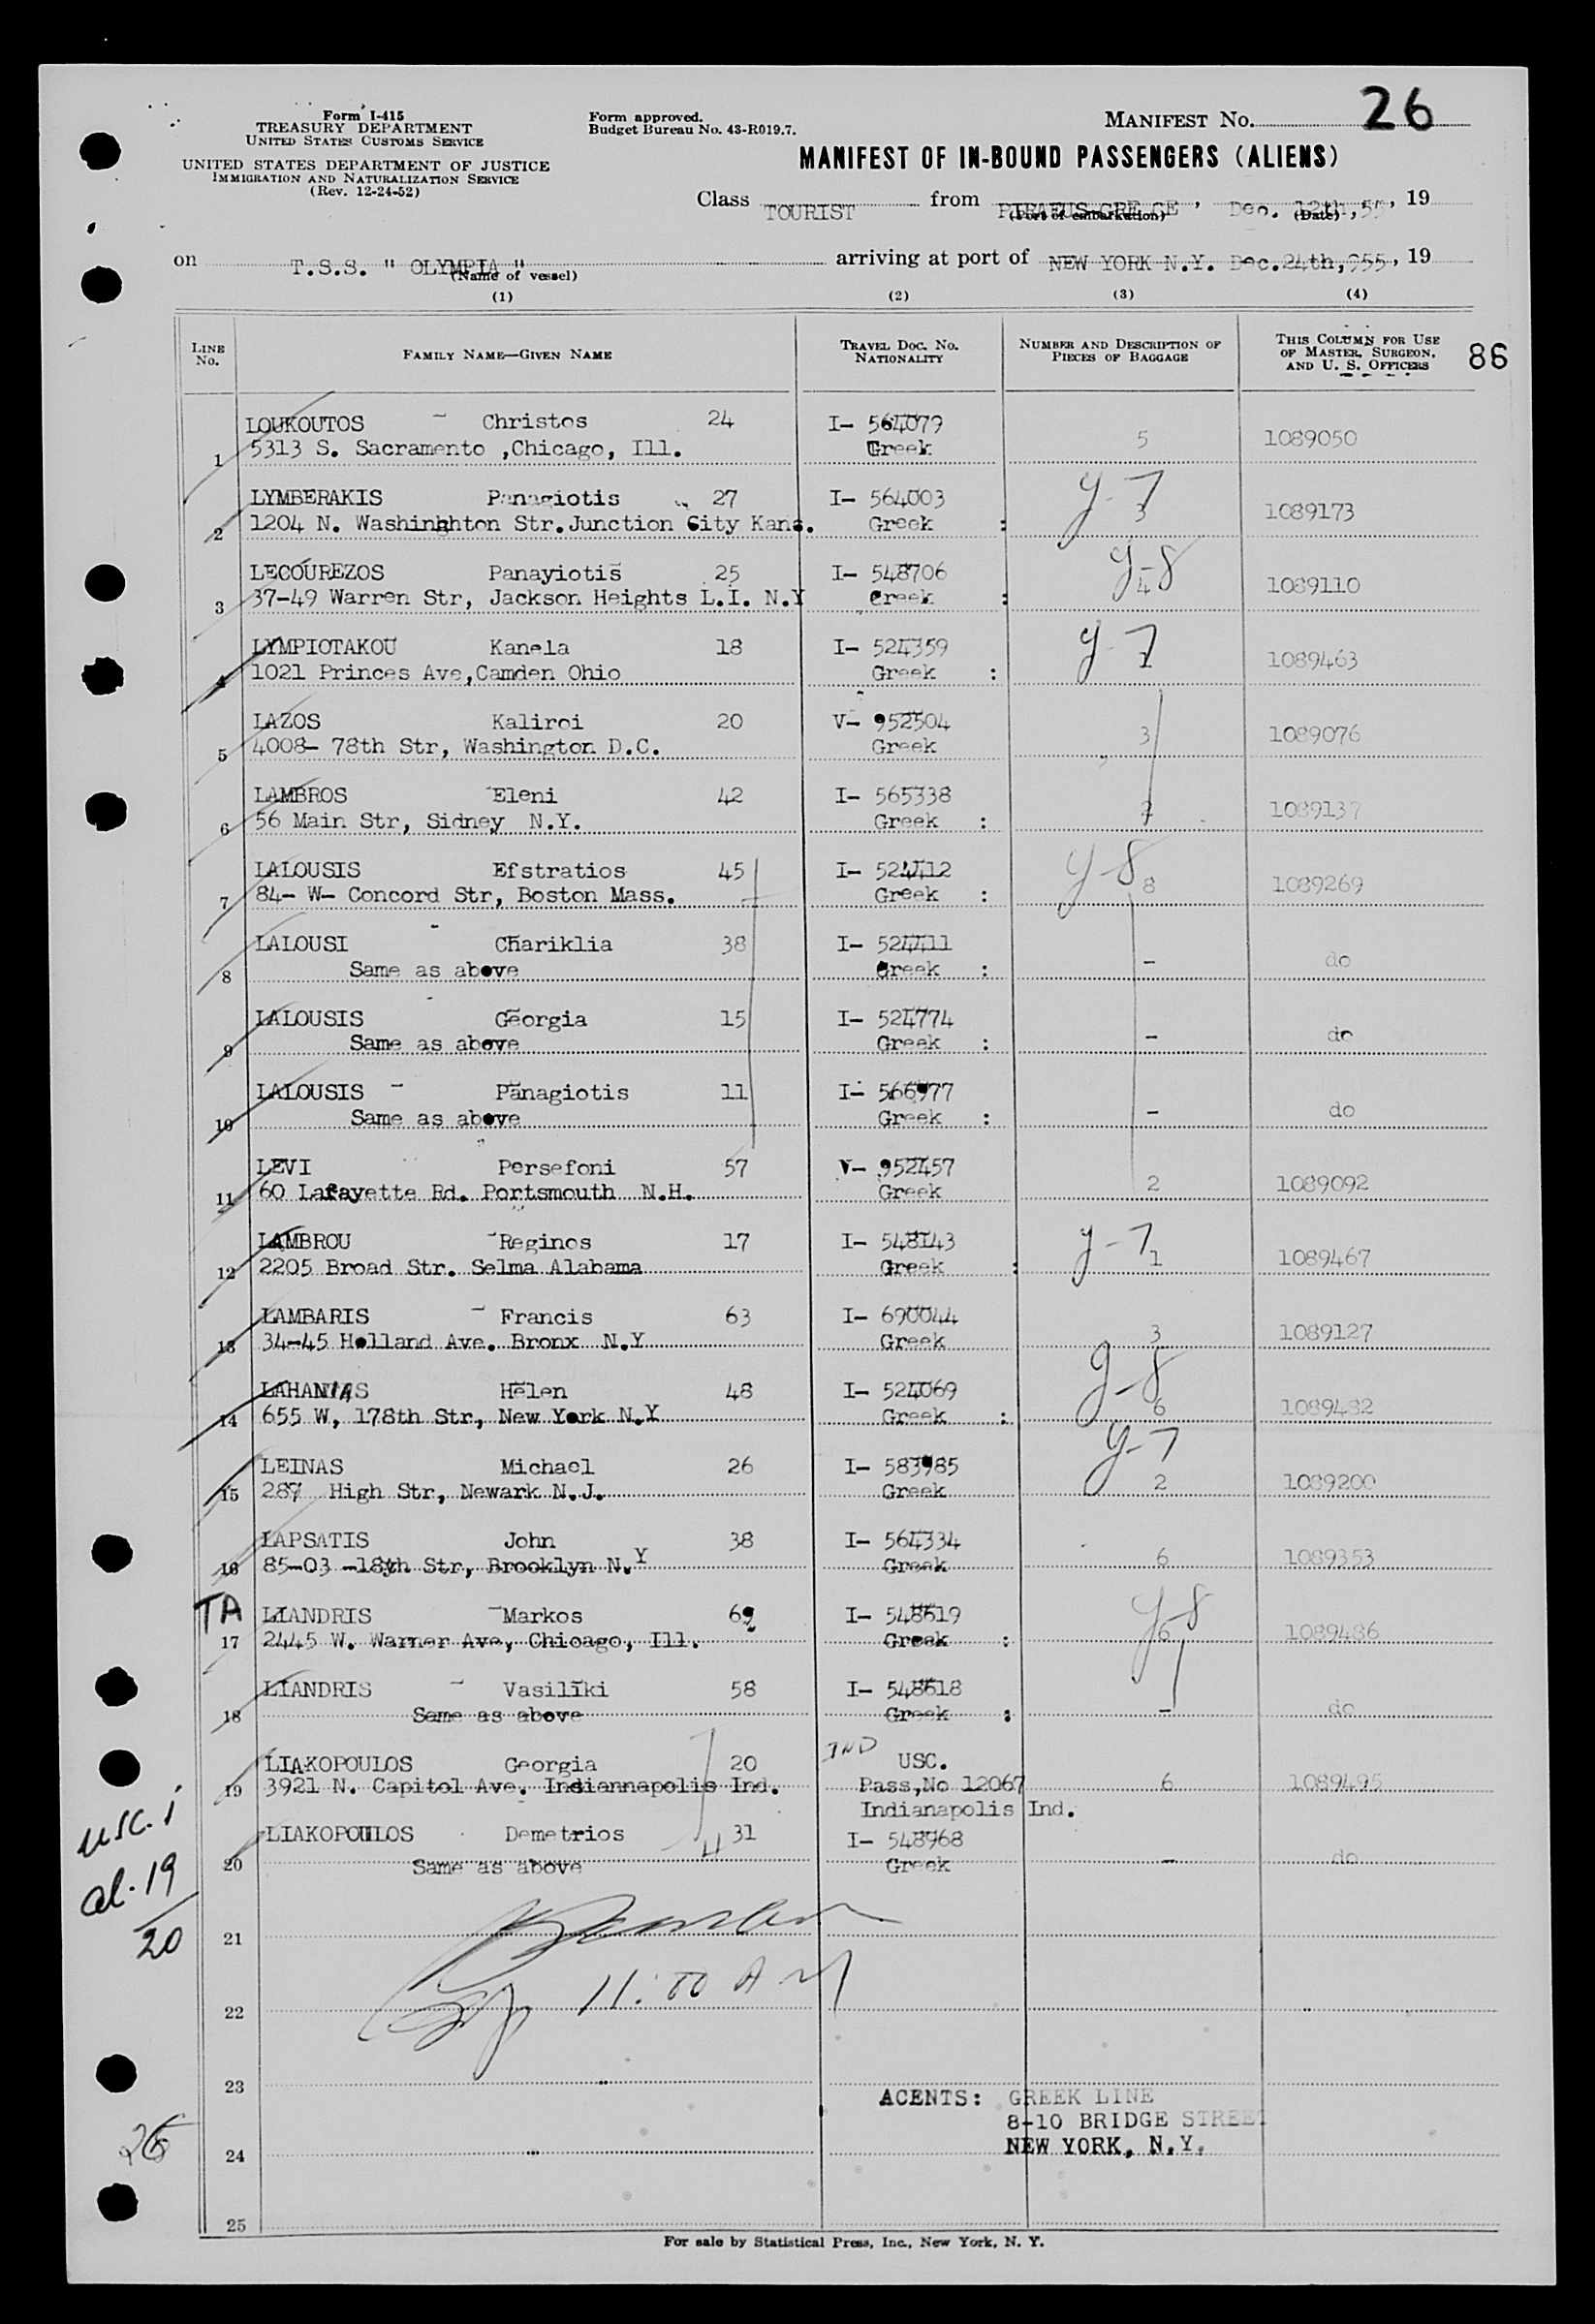 Form I-415
TREASURY DEPARTMENT
UNITED STATES CUSTOMS SERVICE
UNITED STATES DEPARTMENT OF JUSTICE
IMMIGRATION AND NATURALIZATION SERVICE
(Rev. 12-24-52)
Form approved.
Budget Bureau No. 43-R019.7.
MANIFEST No. 26
MANIFEST OF IN-BOUND PASSENGERS (ALIENS)
Class TOURIST from PIRAEUS GRE CE, Dec. 12th, 55, 19
(Port of embarkation) (Date)
on T.S.S. " OLYMPIA " arriving at port of NEW YORK N.Y. Dec.24th,955, 19
(Name of vessel)
(1) (2) (3) (4)
LINE No. FAMILY NAME—GIVEN NAME TRAVEL DOC. NO. NATIONALITY NUMBER AND DESCRIPTION OF PIECES OF BAGGAGE THIS COLUMN FOR USE OF MASTER, SURGEON, AND U. S. OFFICERS 86
LOUKOUTOS - Christos 24 I- 564079
1 5313 S. Sacramento ,Chicago, Ill. Greek 5 1089050
LYMBERAKIS Panagiotis 27 I- 564003 y-7
2 1204 N. Washinhhton Str.Junction City Kans. Greek : 3 1089173
LECOUREZOS Panayiotis 25 I- 548706 y-8
3 37-49 Warren Str, Jackson Heights L.I. N.Y Greek : 4 1089110
LYMPIOTAKOU Kanela 18 I- 524359 y-7
4 1021 Princes Ave,Camden Ohio Greek : 1 1089463
LAZOS Kaliroi 20 V- 952504
5 4008- 78th Str, Washington D.C. Greek 3 1089076
LAMBROS Eleni 42 I- 565338
6 56 Main Str, Sidney N.Y. Greek : 2 1089137
LALOUSIS Efstratios 45 I- 524412 y-8
7 84- W- Concord Str, Boston Mass. Greek : 8 1089269
LALOUSI Chariklia 38 I- 524411
8 Same as above Greek : - do
LALOUSIS Georgia 15 I- 524774
9 Same as above Greek : - do
LALOUSIS - Panagiotis 11 I- 566977
10 Same as above Greek : - do
LEVI Persefoni 57 V- 952457
11 60 Lafayette Rd. Portsmouth N.H. Greek 2 1089092
LAMBROU Reginos 17 I- 548143 y-7
12 2205 Broad Str. Selma Alabama Greek : 1 1089467
LAMBARIS - Francis 63 I- 690044
13 34-45 Holland Ave. Bronx N.Y Greek 3 1089127
LAHANIAS Helen 48 I- 524069 y-8
14 655 W, 178th Str, New York N.Y Greek : 6 1089482
LEINAS Michael 26 I- 583985 y-7
15 287 High Str, Newark N.J. Greek 2 1089200
LAPSATIS John 38 I- 564334
16 85-03 -18yth Str, Brooklyn N.Y Greek 6 1089353
TA LIANDRIS - Markos 69 I- 548619 y-8
17 2445 W. Warner Ave, Chicago, Ill. Greek : 6 1089486
LIANDRIS - Vasiliki 58 I- 548618
18 Same as above Greek : - do
LIAKOPOULOS Georgia 20 IND USC.
19 3921 N. Capitol Ave. Indiannapolis Ind. Pass,No 12067 6 1089495
Indianapolis Ind.
LIAKOPOULOS Demetrios 31 I- 548968
20 Same as above Greek - do
usc. 1
al. 19
20
21
11:00 AM
22
23
AGENTS: GREEK LINE
8-10 BRIDGE STREET
NEW YORK, N.Y.
24
25
For sale by Statistical Press, Inc., New York, N. Y.